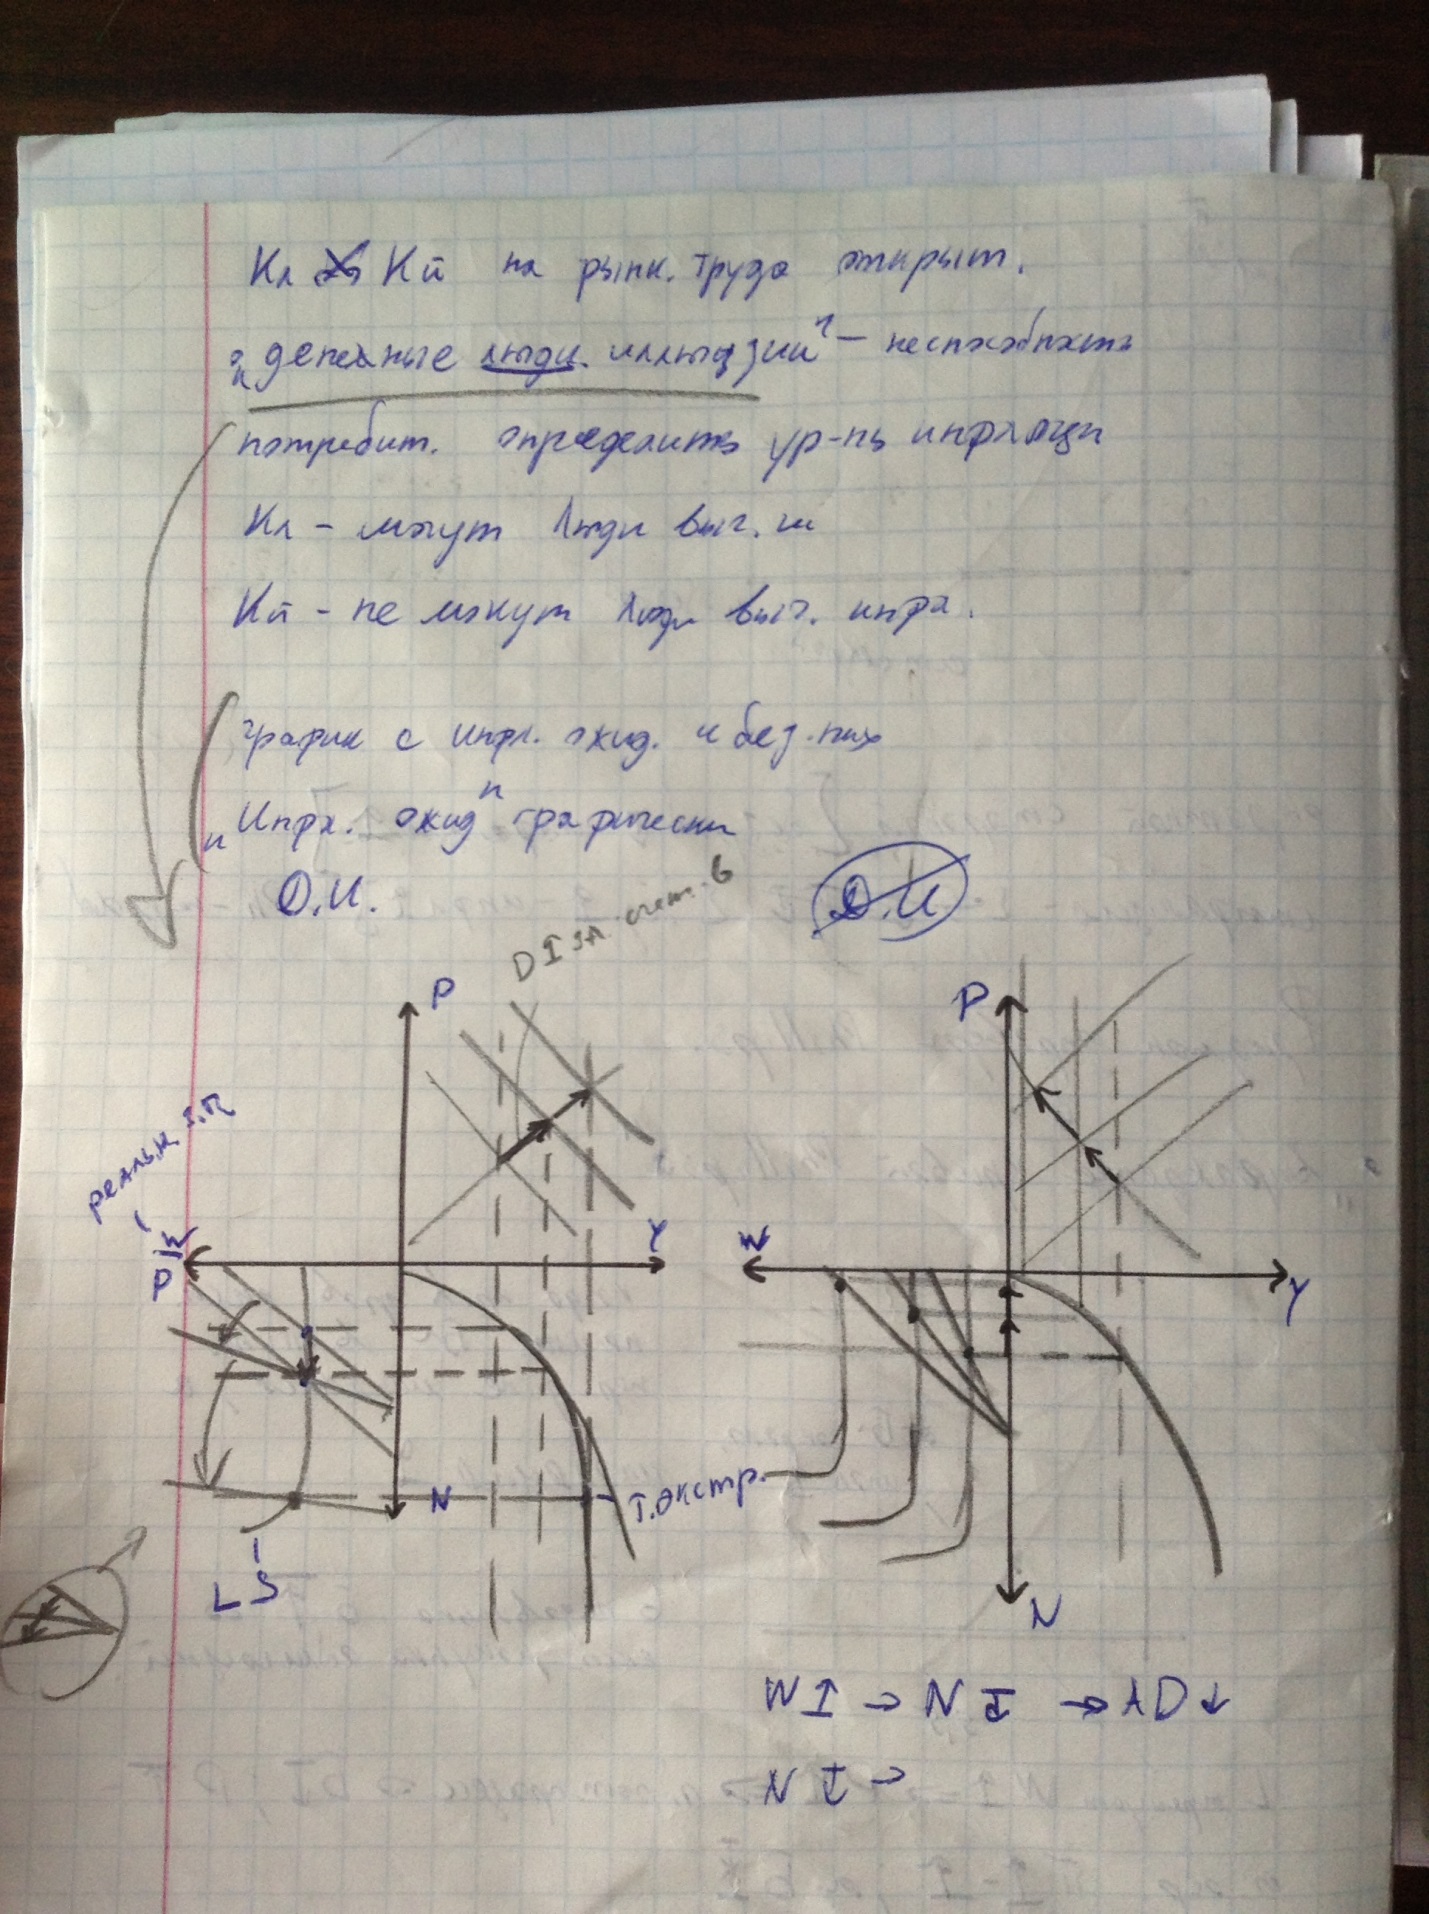 Кл Кй на рынк. труда открыт.
„денежные люди. иллюзии" – неспособность
потребит. определить ур-нь инфляци
Кл – могут люди выч. и
Кй – не могут люди выч. инфл.
График с инфл. ожид. и без них
„Инфл. ожид" графически
О.И.
О.И
D↑ за счет. G
P
P
реальн. з.п
W/P
Y
W
Y
N
т. экстр.
LS
N
W↑ → N↓ → AD↓
N↓ →